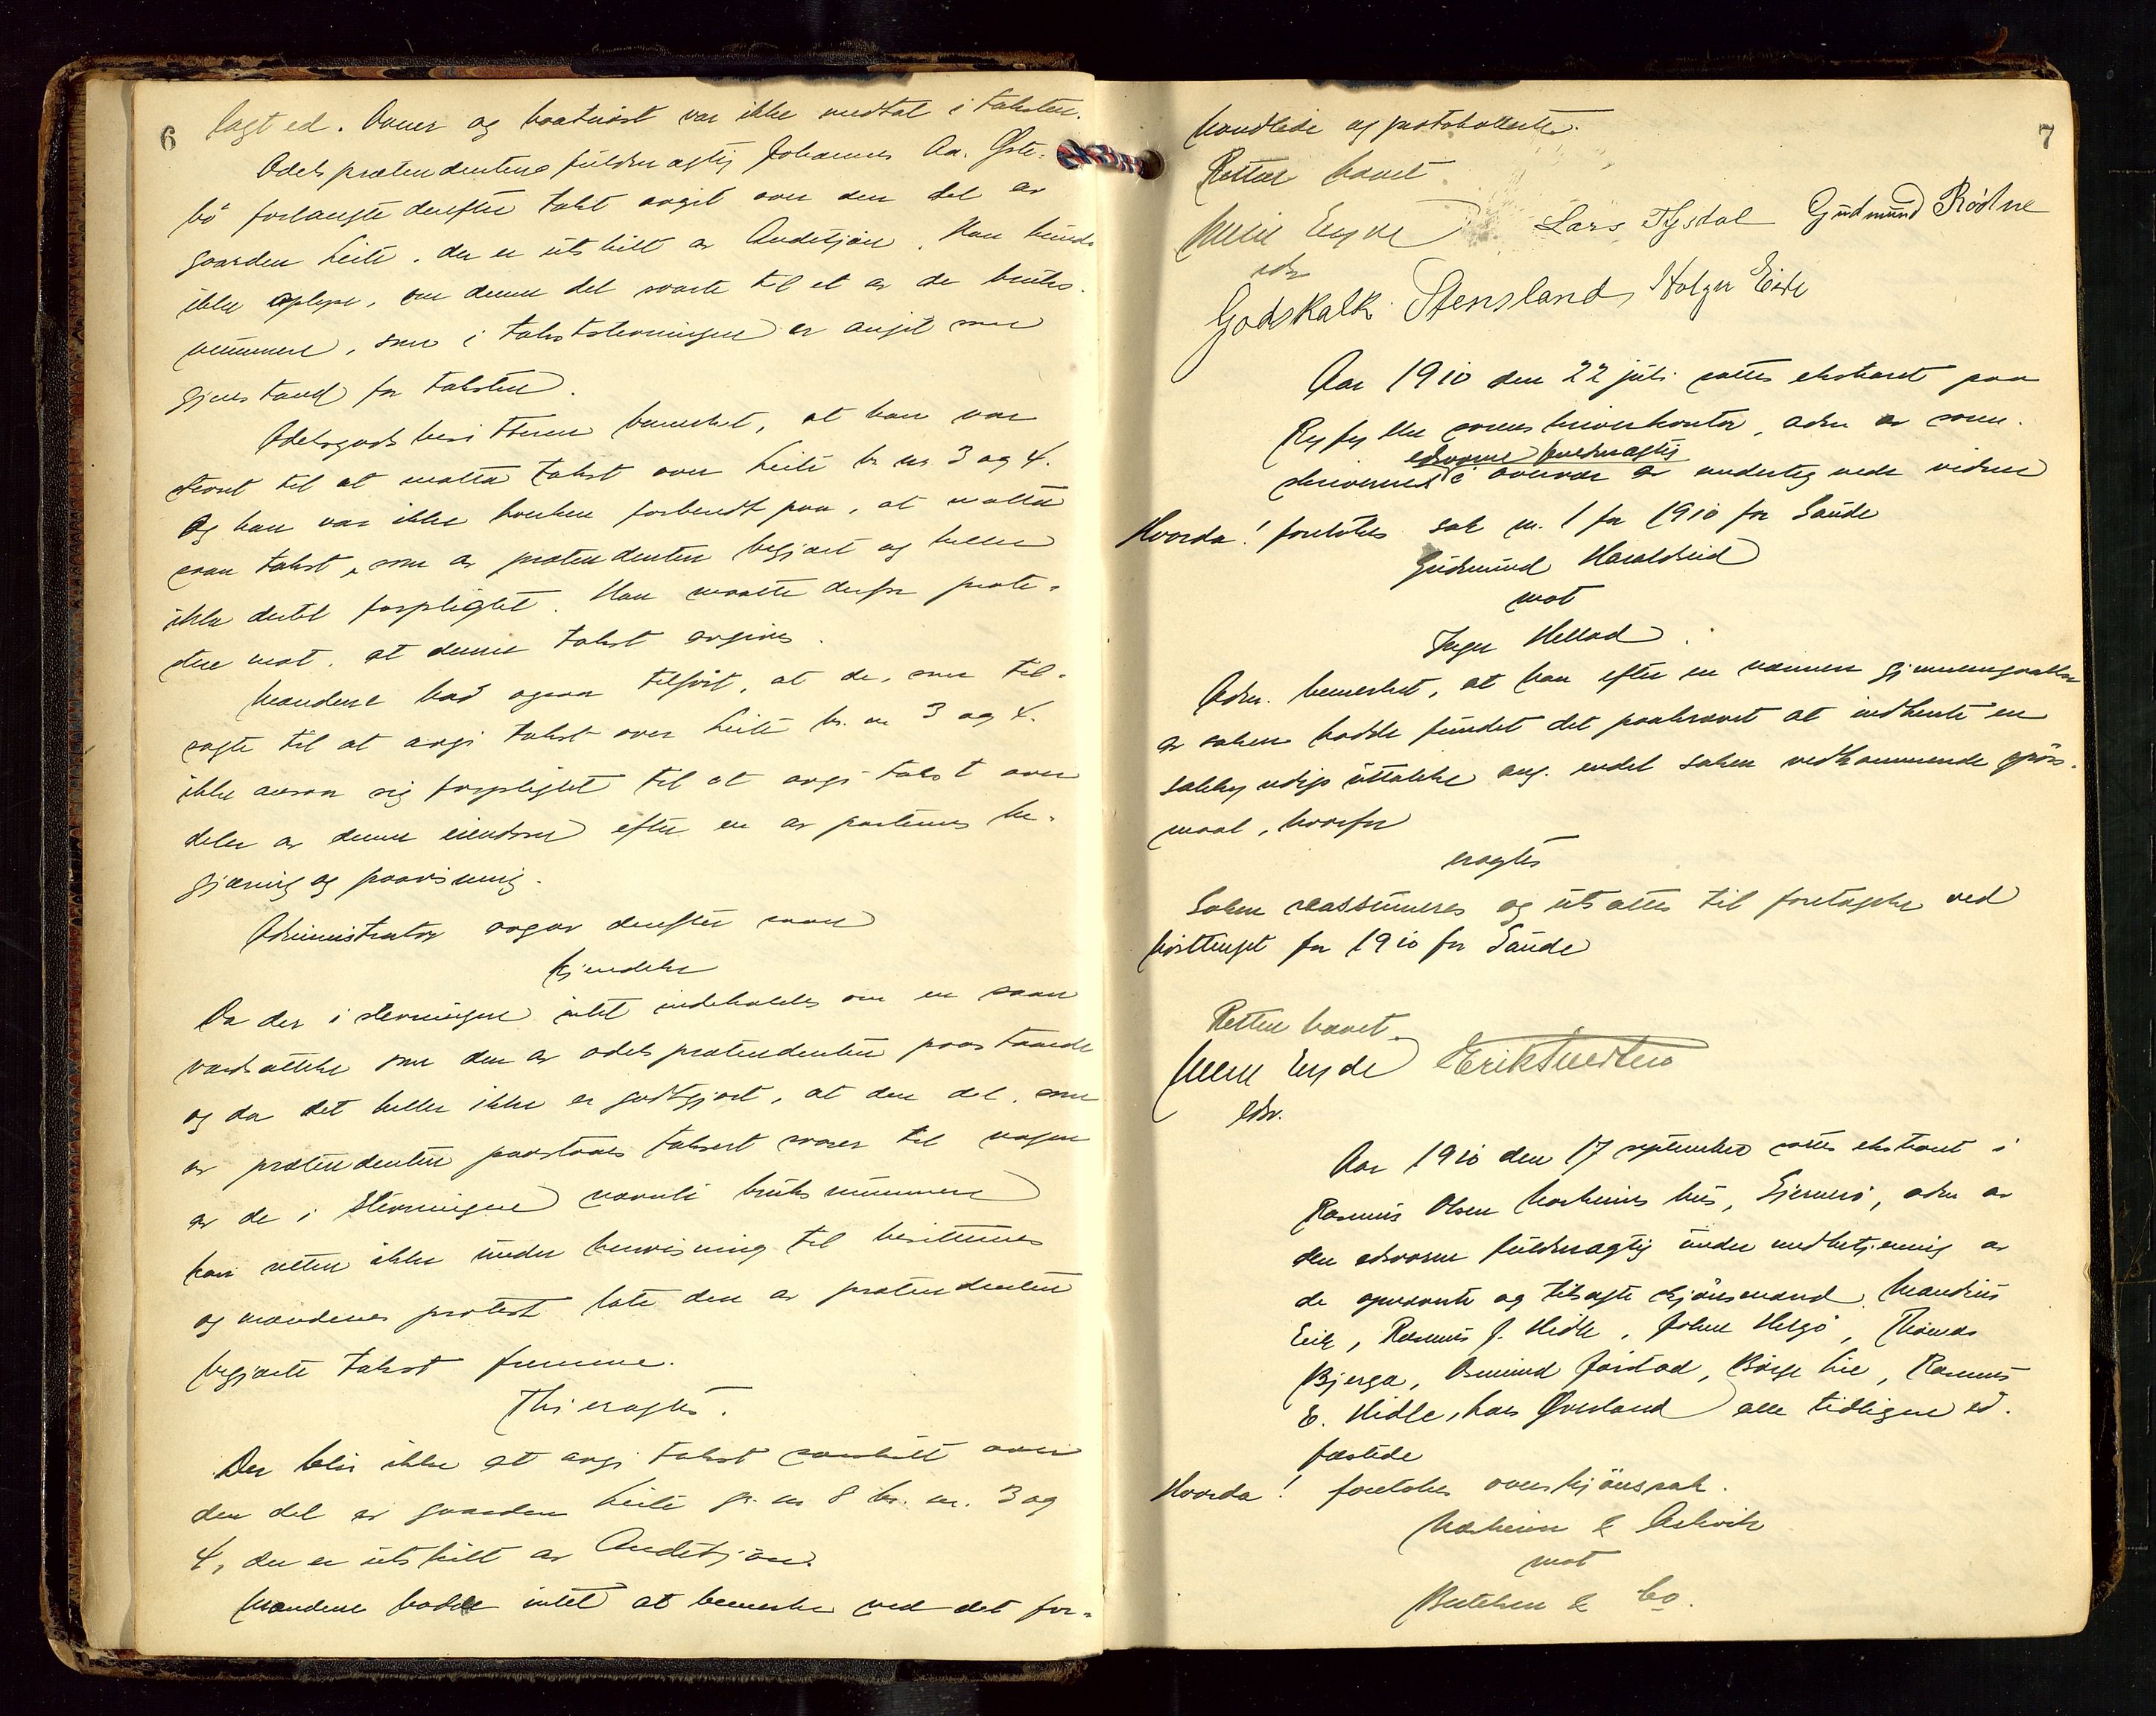 6
lagt ed. Ovner og baatnøst var ikke medtat i taksten.
Odelsprætendentens fuldmægtig Johannes Aa. Øste-
bö forlangte derefter takst avgit over den del av
gaarden Leite, der er utskilt av Andetjön. Han kunde
ikke oplyse, om denne del svarte til et av de bruks-
nummere, som i takststevningen er angit som
gjenstand for taksten.
Odelsgodsbesitteren bemerket, at han var
stevnt til at motta takst over Leite br. nr 3 og 4.
Og han var ikke hverken forberedt paa, at motta
saan takst, som av prætendenten begjært og heller
ikke dertil forpligtet. Han maatte derfor prote-
stere mot, at denne takst avgives.
Mændene bad ogsaa tilført, at de, som til-
sagte til at avgi takst over Leite br. nr 3 og 4.
ikke ansaa sig forpligtet til at avgi takst over
deler av denne eiendom efter en av parternes be-
gjæring og paavisning.
Administrator avgav derefter saan
Kjendelse
Da der i stevningen intet indeholdes om en saan
værdsættelse som den av odelsprætendenten paastaaede
og da det heller ikke er godtgjort, at den del, som
av prætendenten paastaaes taksert svarer til nogen
av de i stevningen nævnte bruksnummere
kan retten ikke under henvisning til besitterens
og mændenes protest late den av prætendenten
begjærte takst fremme.
Thi eragtes.
Der blir ikke at avgi takst særskilt over
den del av gaarden Leite gr. nr 8 br. nr. 3 og
4, der er utskilt av Andetjön.
Mændene hadde intet at bemerke ved det for-
7
handlede og protokollerte.
Retten hævet
Eyde Lars Tysdal Gudmund Rødne
edv
Godskalk Stensland, Holger Eide
Aar 1910 den 22 juli sattes ekstraret paa
Ryfylke sorenskriverkontor, adm av soren-
edsvorne fuldmægtig
skriverens i overvær av undertegnede vidner
Hvorda! foretokes sak nr. 1 for 1910 for Saude
Gudmund Haraldseid
mot
Inger Helland.
Adm. bemerket, at han efter en nærmere gjennemgaaelse
av saken hadde fundet det paakrævet at indhente en
sakkyndigs uttalelse ang. endel saken vedkommende spörs-
maal, hvorfor
eragtes
Saken reassumeres og utsættes til foretagelse ved
hösttinget for 1910 for Saude
Retten hævet.
Eyde Erik
edv.
Aar 1910 den 17 september sattes ekstraret i
Rasmus Olsen Maskeims hus, Sjernerö, adm av
den edsvorne fuldmægtig under medbetjening av
de opnævnte og tilsagte skjönsmænd Mandius
Eik, Rasmus J. Hidle, Johan Helgö, Thomas
Bjerga, Osmund Jörstad, Börge Lie, Rasmus
E. Hidle, Lars Qveland alle tidligere ed-
fæstede
Hvorda! foretokes overskjönssak.
Maskeim & Askvik
mot
& Co.